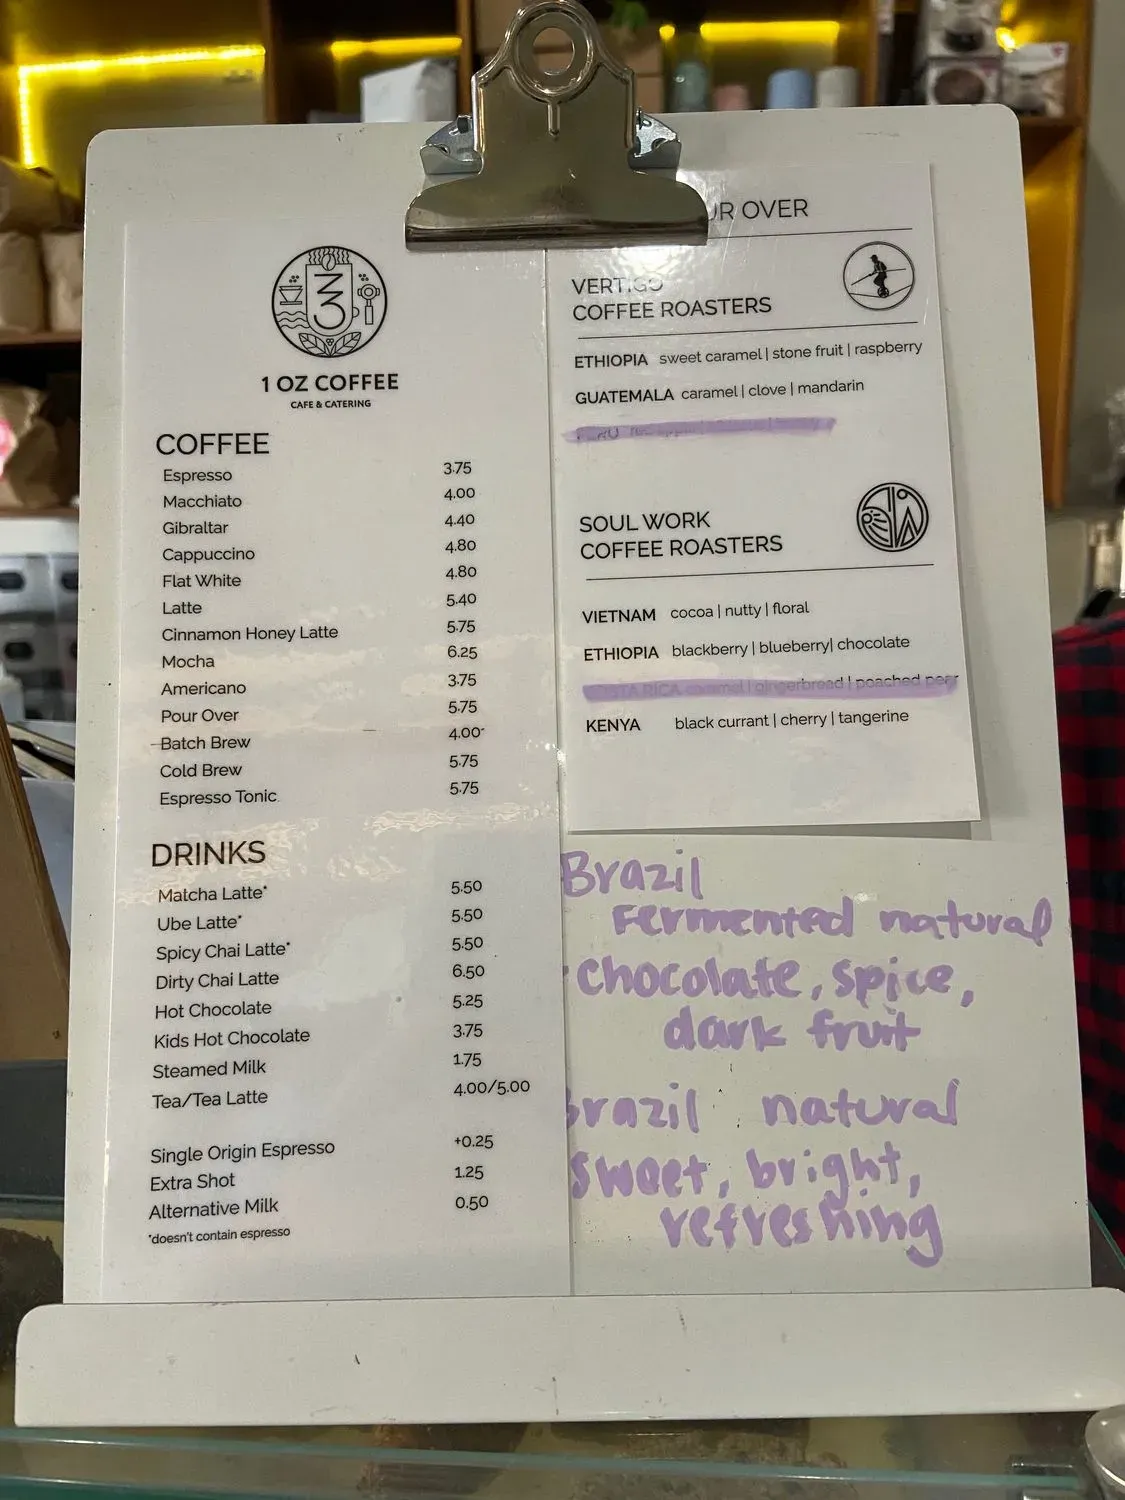 1 OZ COFFEE
CAFE & CATERING
COFFEE
Espresso 3.75
Macchiato 4.00
Gibraltar 4.40
Cappuccino 4.80
Flat White 4.80
Latte 5.40
Cinnamon Honey Latte 5.75
Mocha 6.25
Americano 3.75
Pour Over 5.75
Batch Brew 4.00
Cold Brew 5.75
Espresso Tonic 5.75
DRINKS
Matcha Latte* 5.50
Ube Latte* 5.50
Spicy Chai Latte* 5.50
Dirty Chai Latte 6.50
Hot Chocolate 5.25
Kids Hot Chocolate 3.75
Steamed Milk 1.75
Tea/Tea Latte 4.00/5.00
Single Origin Espresso +0.25
Extra Shot 1.25
Alternative Milk 0.50
*doesn't contain espresso
OVER
VERTIGO
COFFEE ROASTERS
ETHIOPIA sweet caramel | stone fruit | raspberry
GUATEMALA caramel | clove | mandarin
SOUL WORK
COFFEE ROASTERS
VIETNAM cocoa | nutty | floral
ETHIOPIA blackberry | blueberry| chocolate
COSTA RICA caramel | gingerbread | poached pear
KENYA black currant | cherry | tangerine
Brazil
Fermented natural
Chocolate, spice,
dark fruit
Brazil natural
Sweet, bright,
refreshing